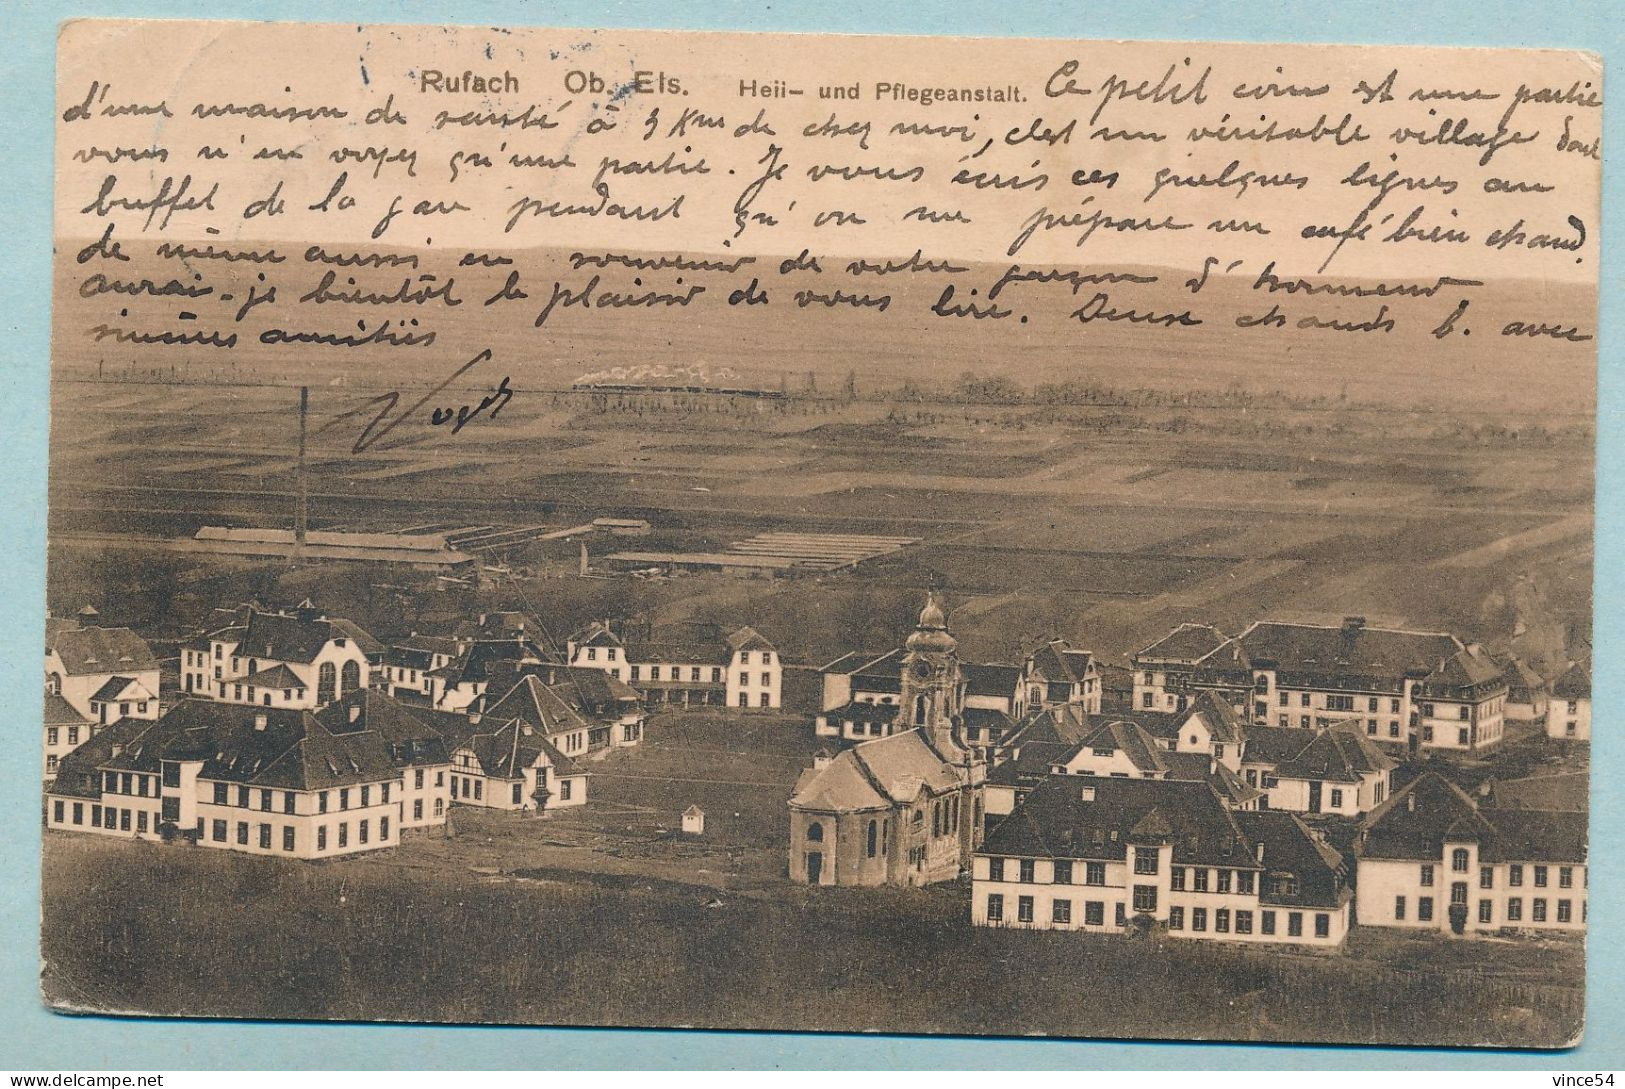 Rufach Ob. Els. Heil- und Pflegeanstalt.
Ce petit coin est une partie
d'une maison de santé à 3 Km de chez moi, c'est un véritable village dont
vous n'en voyez qu'une partie. Je vous écris ces quelques lignes au
buffet de la gare pendant qu'on me prépare un café bien chaud,
de même aussi en souvenir de votre garçon d'honneur
aurai-je bientôt le plaisir de vous lire. Deux chauds b. avec
sincères amitiés
Vogt
vince54